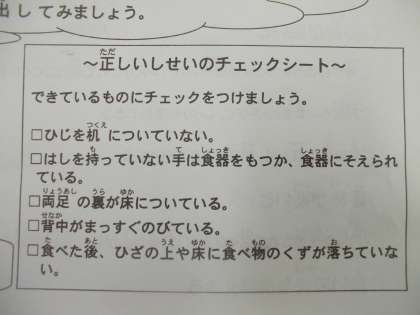 出してみましょう。
～正しいしせいのチェックシート～
できているものにチェックをつけましょう。
□ひじを机 についていない。
□はしを持っていない手は食器をもつか、食器にそえられ
ている。
□両足 の裏が床についている。
□背中がまっすぐのびている。
□食べた後、ひざの上や床に食べ物のくずが落ちていな
い。